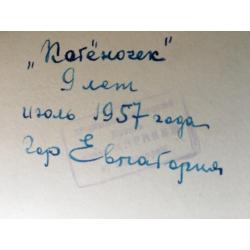 „Котёночек"
9 лет
июль 1957 года
гор Евпатория